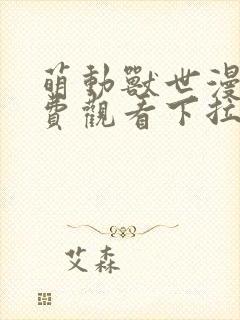 萌動獸世漫
費觀看下拉
艾森